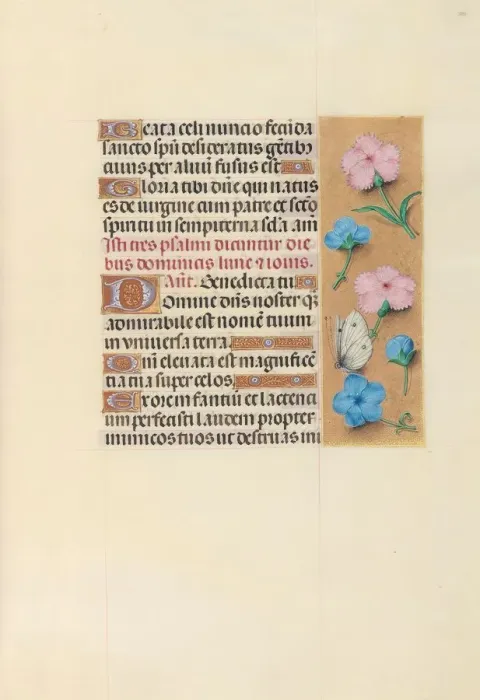 Beata celi nuncio fecūda
sancto spū desideratus gētibꝰ
cuius per aluū fusus est
Gloria tibi dn̄e qui natus
es de uirgine cum patre et scō
spiritu in sempiterna scl̄a am̄
Isti tres psalmi dicuntur die
bus dominicis lune ⁊ iouis.
An̄t. Benedicta tu
Domine dn̄s noster qꝫ
admirabile est nomē tuum
in vniuersa terra.
Qm̄ eleuata est magnificē
tia tua super celos.
Ex ore infantiū et lactenti
um perfecisti laudem propter
inimicos tuos ut destruas ini